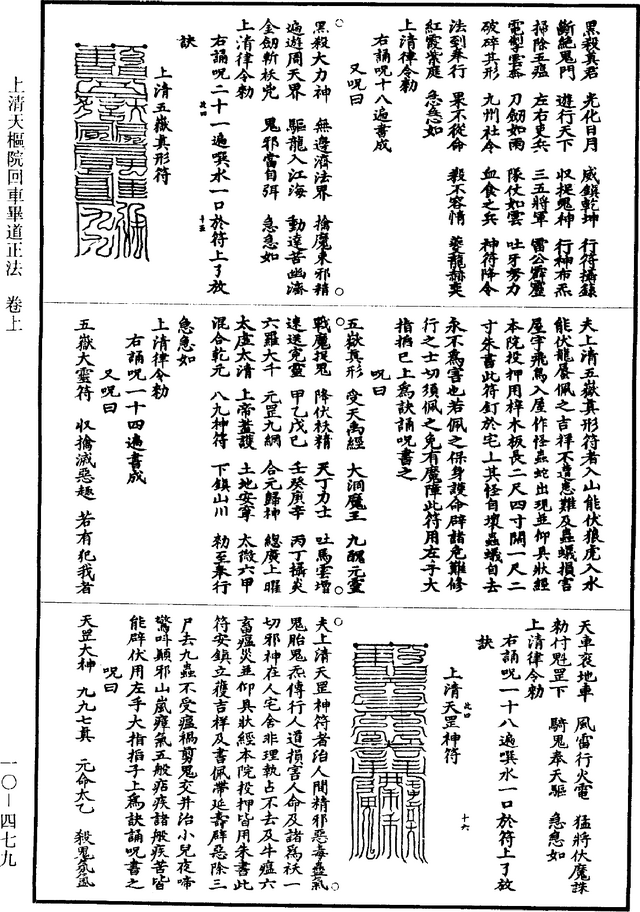 上清天樞院回車畢道正法　卷上
一〇—四七九
黑殺真君　光化日月　威鎮乾坤　行符攝錄
斷絕鬼門　遊行天下　收捉鬼神　行神布炁
掃除五瘟　左右吏兵　三五將軍　雷公霹靂
電掣雲奔　刀劒如雨　隊仗如雲　吐牙努力
破碎其形　九州社令　血食之兵　神符降令
法到奉行　果不從命　殺不容情　夔龍赫奕
紅霞紫庭　急急如
上清律令勅
右誦呪十八遍書成
又呪曰
黑殺大力神　無邊濟法界　擒魔束邪精
遍遊周天界　驅龍入江海　動達苦幽滯
金劒斬妖兇　鬼邪當自弭　急急如
上清律令勅
右誦呪二十一遍噀水一口於符上了放
訣
上清五嶽真形符
北四　十五
夫上清五嶽真形符者入山能伏狼虎入水
能伏龍蜃佩之吉祥不遭患難及蟲蟻損害
屋宇飛鳥入屋作怪蟲蛇出現並仰具狀經
本院投押用梓木板長二尺四寸闊一尺二
寸朱書此符釘於宅上其怪自壞蟲蟻自去
永不為害也若佩之保身護命辟諸危難修
行之士切須佩之免有魔障此符用左手大
指掐巳上為訣誦呪書之
呪曰
五嶽真形　受天禹經　大洞魔王　九醜元靈
戰魔捉鬼　降伏妖精　天丁力士　吐馬雲增
速送冤靈　甲乙戊巳　壬癸庚辛　丙丁攝炎
六羅大千　元罡九網　合元歸神　總廣上曜
太虛太清　上帝蓋護　土地安寧　太微六甲
混合乾元　八九神符　下鎮山川　勅至奉行
急急如
上清律令勅
右誦呪一十四遍書成
又呪曰
五嶽大靈符　收擒滅惡趣　若有犯我者
天車夜地車　風雷行火電　猛將伏魔誅
勅付魁罡下　騎鬼奉天驅　急急如
上清律令勅
右誦呪一十八遍噀水一口於符上了放
訣
上清天罡神符
北四　十六
夫上清天罡神符者治人間精邪惡毒蠱氣
鬼胎鬼炁傳行人道損害人命及諸為妖一
切邪神在人宅舍非理執占不去及牛瘟六
畜瘟炎並仰具狀經本院投押皆用朱書此
符安鎮立獲吉祥及書佩帶延壽辟惡除三
尸去九蟲不受瘟禍剪鬼交并治小兒夜啼
驚叫顛邪山嵐瘴氣五般痁疾諸般疾苦皆
能辟伏用左手大指掐子上為訣誦呪書之
呪曰
天罡大神　九九七真　元命太乙　殺鬼氛氳